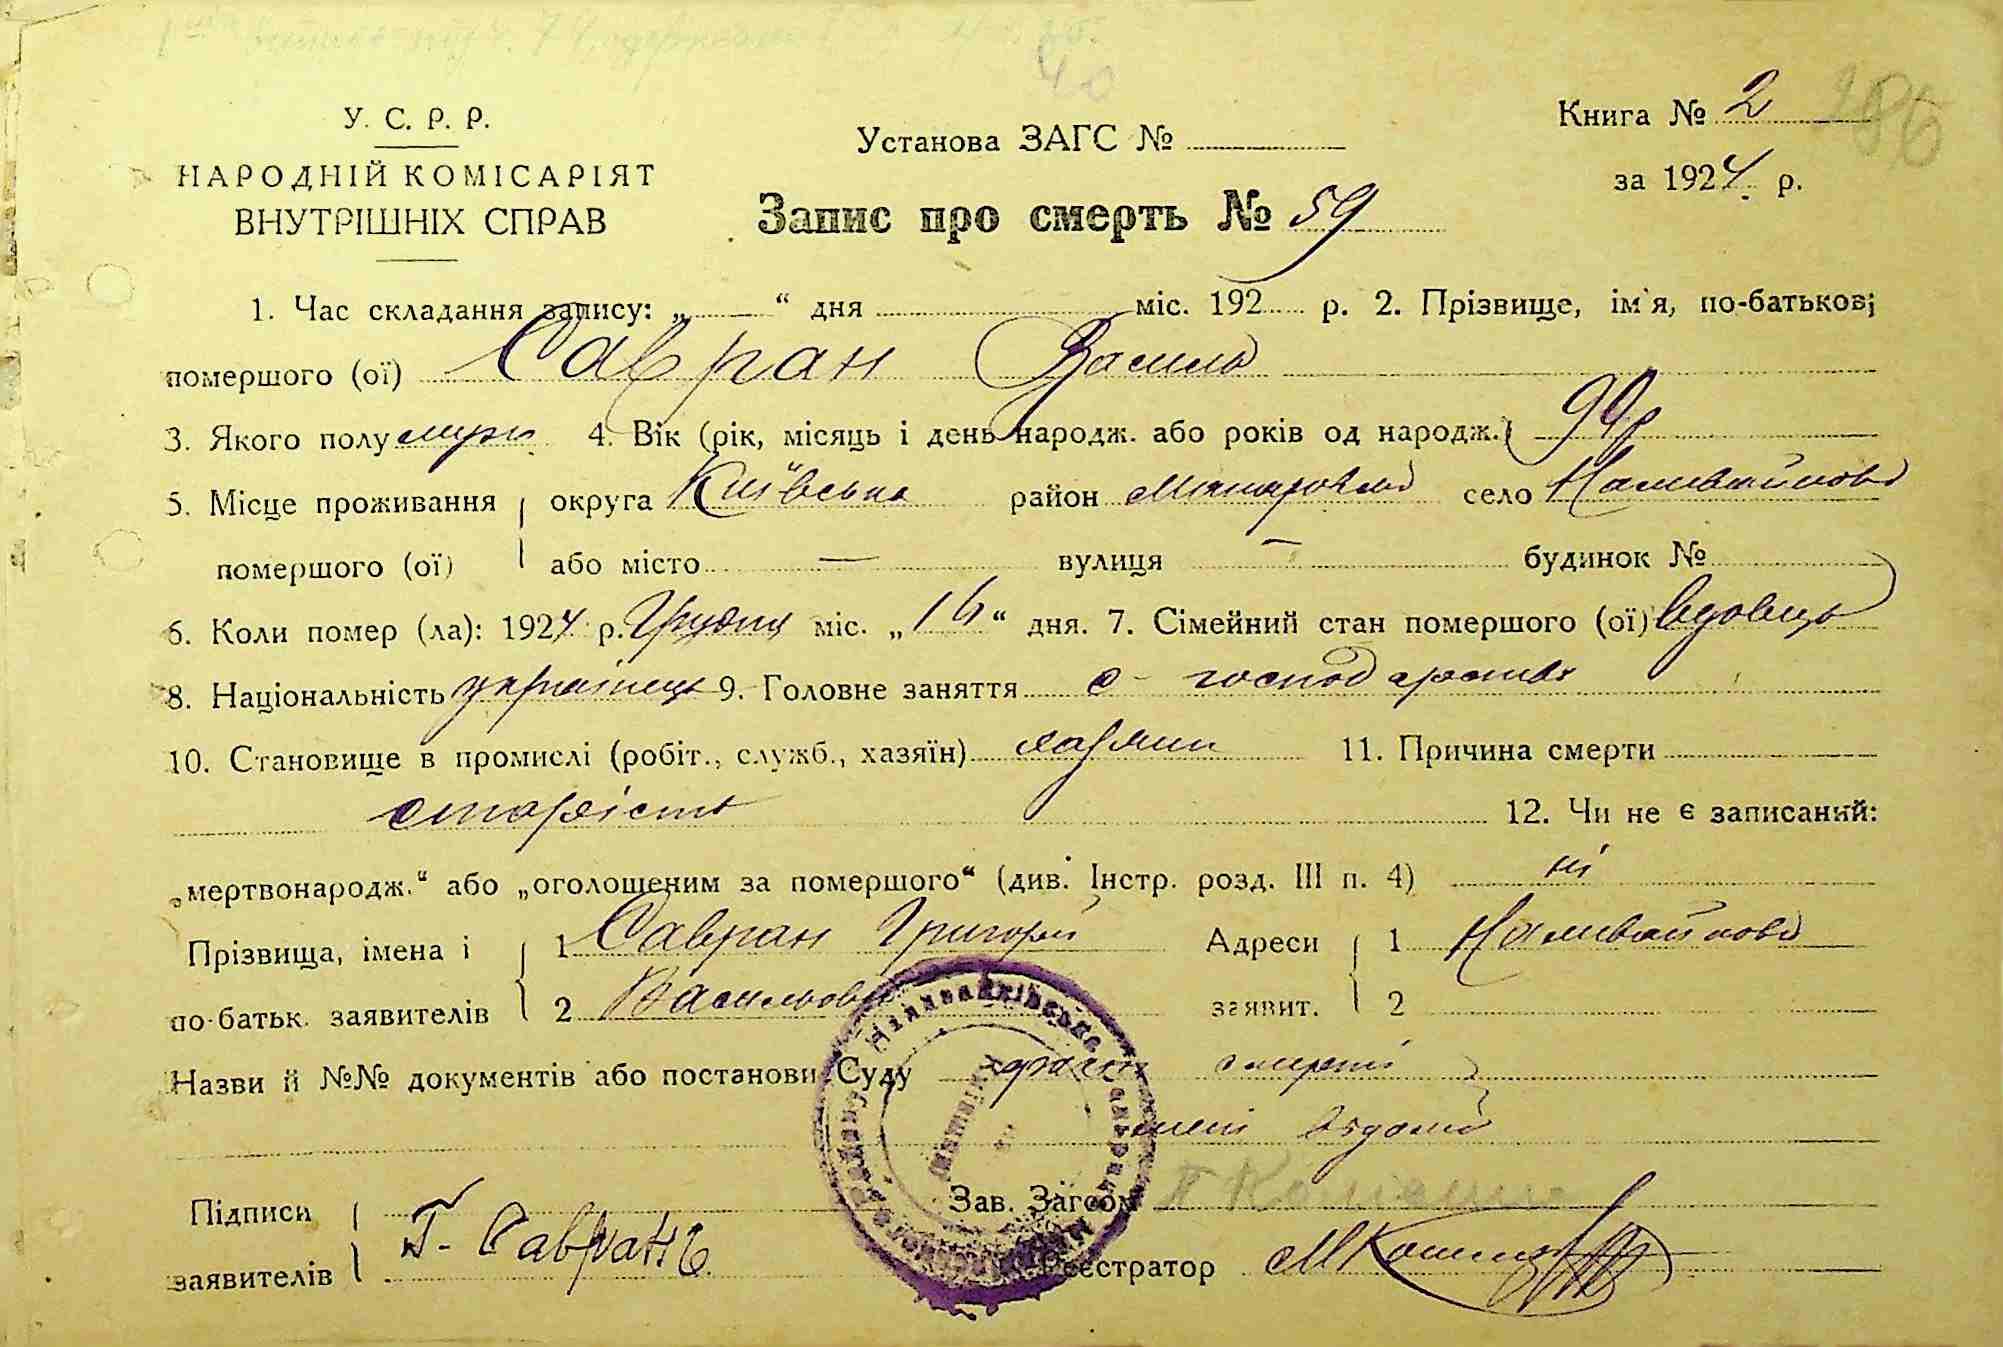 У. С. Р. Р.
НАРОДНІЙ КОМІСАРІЯТ
ВНУТРІШНІХ СПРАВ
Установа ЗАГС №
Запис про смерть № 59
Книга № 2
за 1924 р.
1. Час складання запису: „ — “ дня міс. 192 р. 2. Прізвище, ім'я, по-батькові
помершого (ої) Савран Василь
3. Якого полу муж 4. Вік (рік, місяць і день народж. або років од народж.) 90р
5. Місце проживання округа Київська район Макаровськ село Наливайково
помершого (ої) або місто — вулиця — будинок №
6. Коли помер (ла): 1924 р. Грудня міс. „16“ дня. 7. Сімейний стан помершого (ої) вдовець
8. Національність українець 9. Головне заняття с-господарство
10. Становище в промислі (робіт., служб., хазяїн) хазяин 11. Причина смерти
старість 12. Чи не є записаний:
„мертвонародж.“ або „оголошеним за помершого“ (див. Інстр. розд. III п. 4) ні
Прізвища, імена і 1 Савран Григорій Адреси 1 Наливайково
по-батьк. заявителів 2 Васильович заявит. 2
Назви й №№ документів або постанови Суду смерті
мені відомий
Підписи Зав. Загсом
заявителів Г. Савранъ Реєстратор